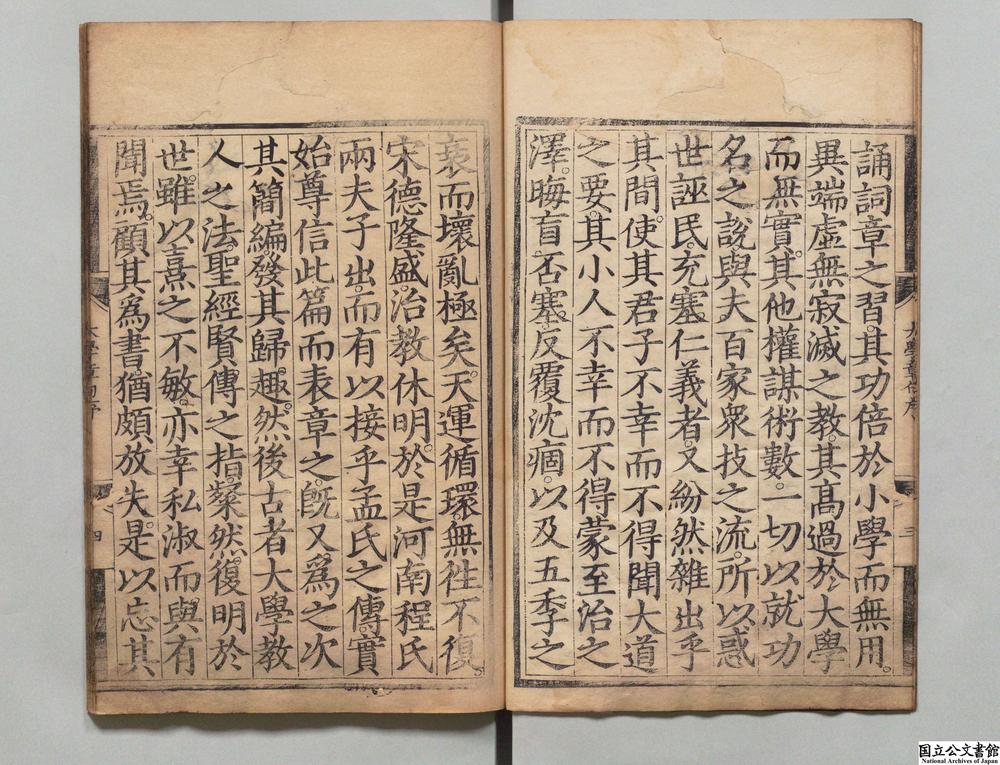 誦詞章之習。其功倍於小學而無用。
異端虛無寂滅之教。其高過於大學
而無實。其他權謀術數。一切以就功
名之說。與夫百家衆技之流。所以惑
世誣民。充塞仁義者。又紛然雜出乎
其間。使其君子不幸而不得聞大道
之要。其小人不幸而不得蒙至治之
澤。晦盲否塞。反覆沈痼。以及五季之
大學章句序
三
衰而壞亂極矣。天運循環。無往不復。
宋德隆盛。治教休明。於是河南程氏
兩夫子出。而有以接乎孟氏之傳。實
始尊信此篇而表章之。旣又爲之次
其簡編。發其歸趣。然後古者大學教
人之法。聖經賢傳之指。粲然復明於
世。雖以熹之不敏。亦幸私淑而與有
聞焉。顧其爲書。猶頗放失。是以忘其
大學章句序
四
国立公文書館
National Archives of Japan